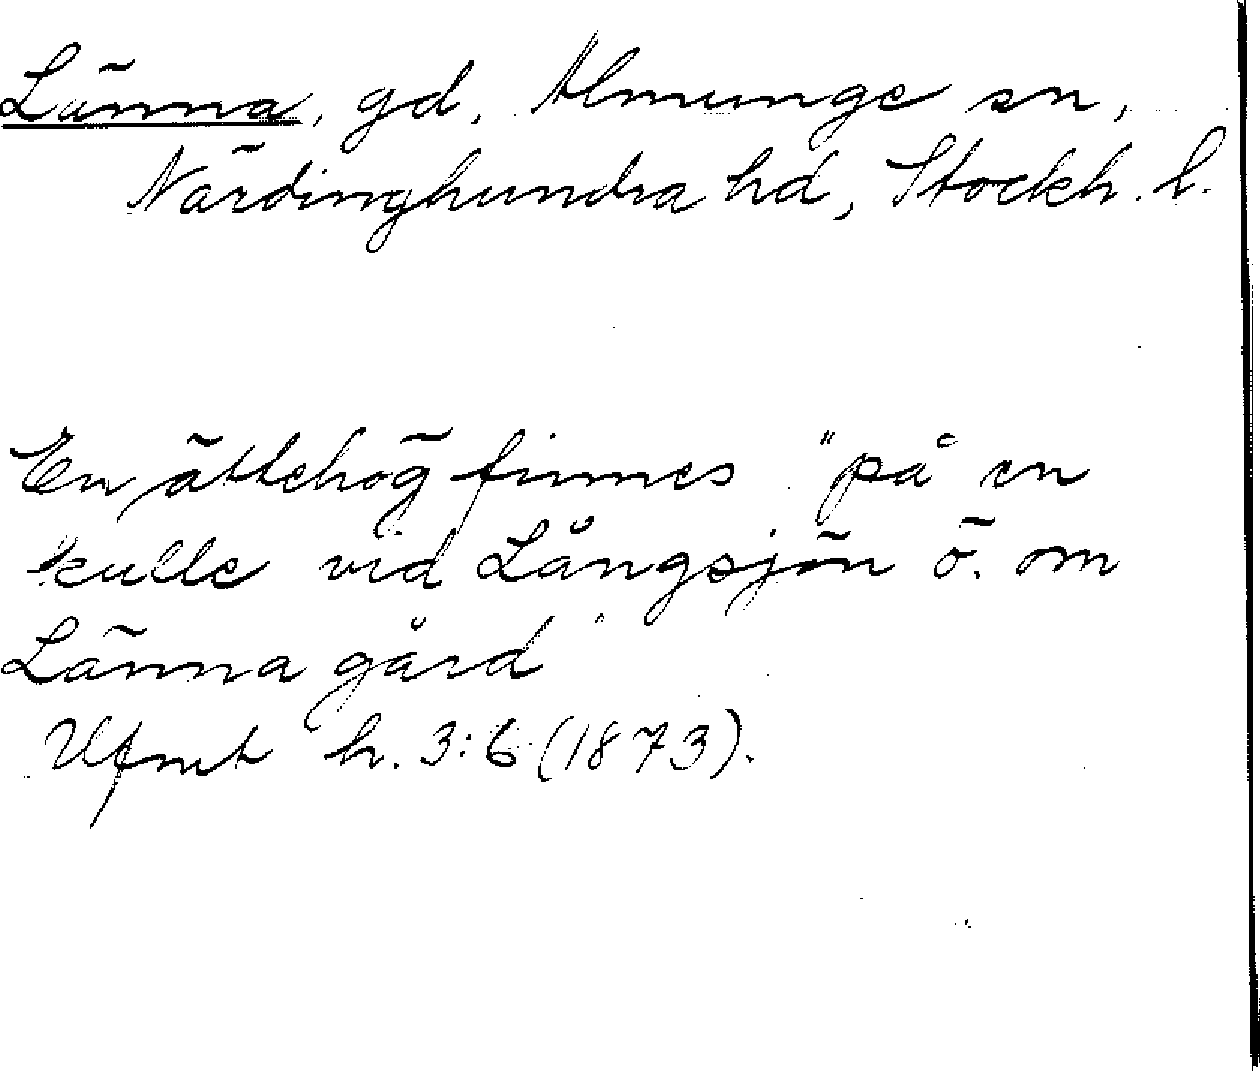 Länna, gd, Almunge sn,
Närdinghundra hd, Stockh. l.
En ättehög finnes "på en
kulle vid Långsjön ö. om
Länna gård"
Ufmt h. 3:6 (1873).